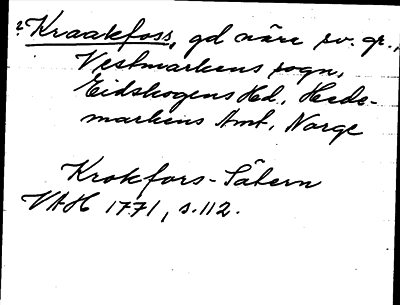 ? Kraakfoss, gd nära sv. gr.,
Vestmarkens sogn,
Eidskogens Hd., Hede-
markens Amt, Norge
Krokfors-Sätern
VAH 1771, s. 112.